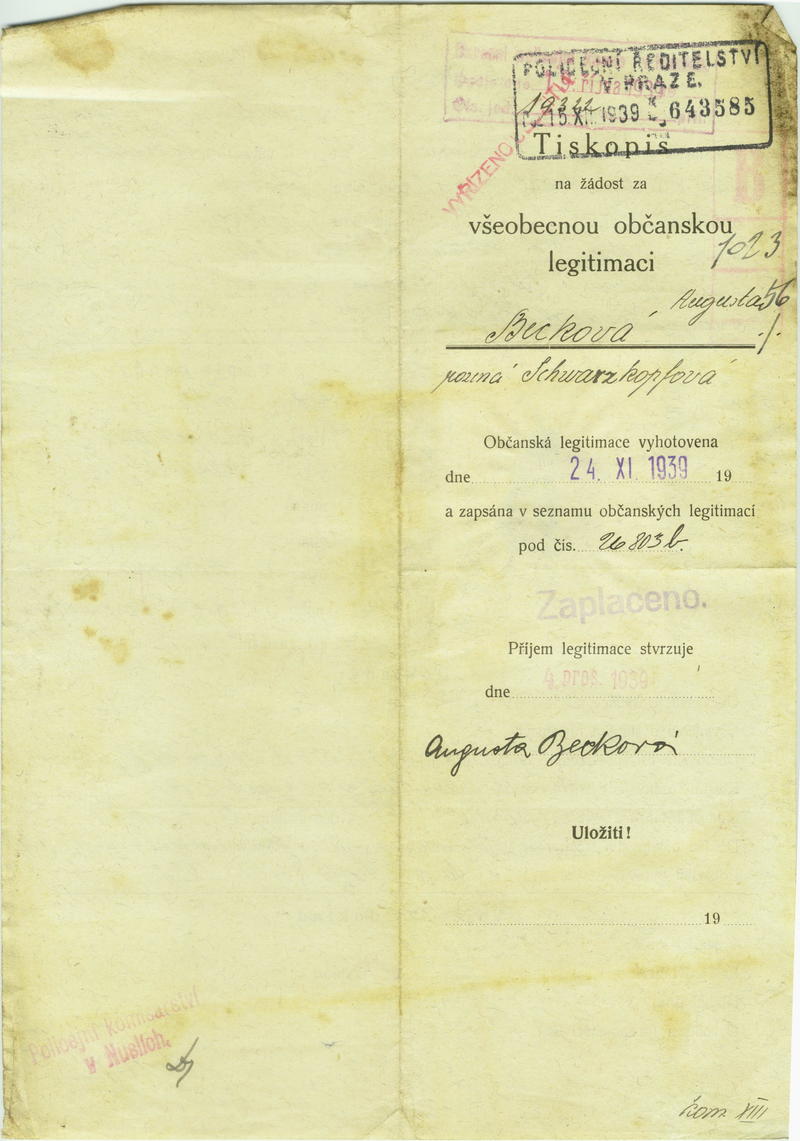 POLICEJNÍ ŘEDITELSTVÍ
V PRAZE.
15 XI 1939 643585
VYŘÍZENO
Tiskopis
na žádost za
všeobecnou občanskou
legitimaci
1023
Augusta 56
Becková
rozená Schwarzkopfová
Občanská legitimace vyhotovena
dne 24. XI. 1939 19
a zapsána v seznamu občanských legitimací
pod čís. 26803b.
Zaplaceno.
Příjem legitimace stvrzuje
4. pros. 1939
dne
Augusta Becková
Uložiti!
19
Policejní komisařství
v Nuslích.
kom XIII